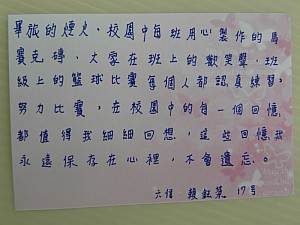 畢旅的煙火、校園中每班用心製作的馬
賽克磚、大家在班上的歡笑聲、班
級上的籃球比賽每個人都認真練習,
努力比賽,在校園中的每一個回憶
都值得我細細回想,這些回憶我
永遠保存在心裡,不會遺忘。
六信 賴鈺棻 17号